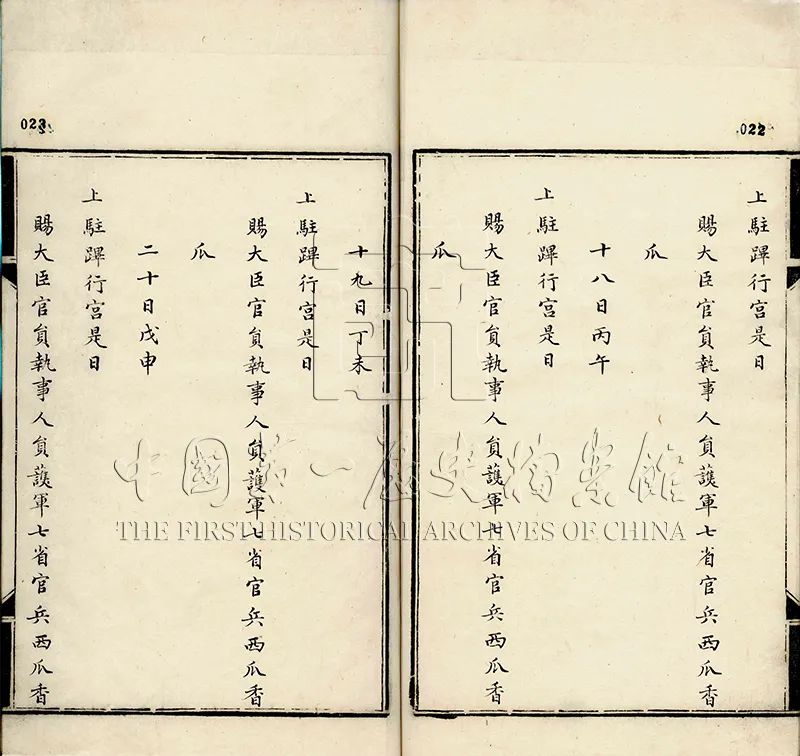 022
上駐蹕行宮是日
賜大臣官員執事人員護軍七省官兵西瓜香
瓜
十八日丙午
上駐蹕行宮是日
賜大臣官員執事人員護軍七省官兵西瓜香
瓜
023
十九日丁未
上駐蹕行宮是日
賜大臣官員執事人員護軍七省官兵西瓜香
瓜
二十日戊申
上駐蹕行宮是日
賜大臣官員執事人員護軍七省官兵西瓜香
中國第一歷史檔案館
THE FIRST HISTORICAL ARCHIVES OF CHINA